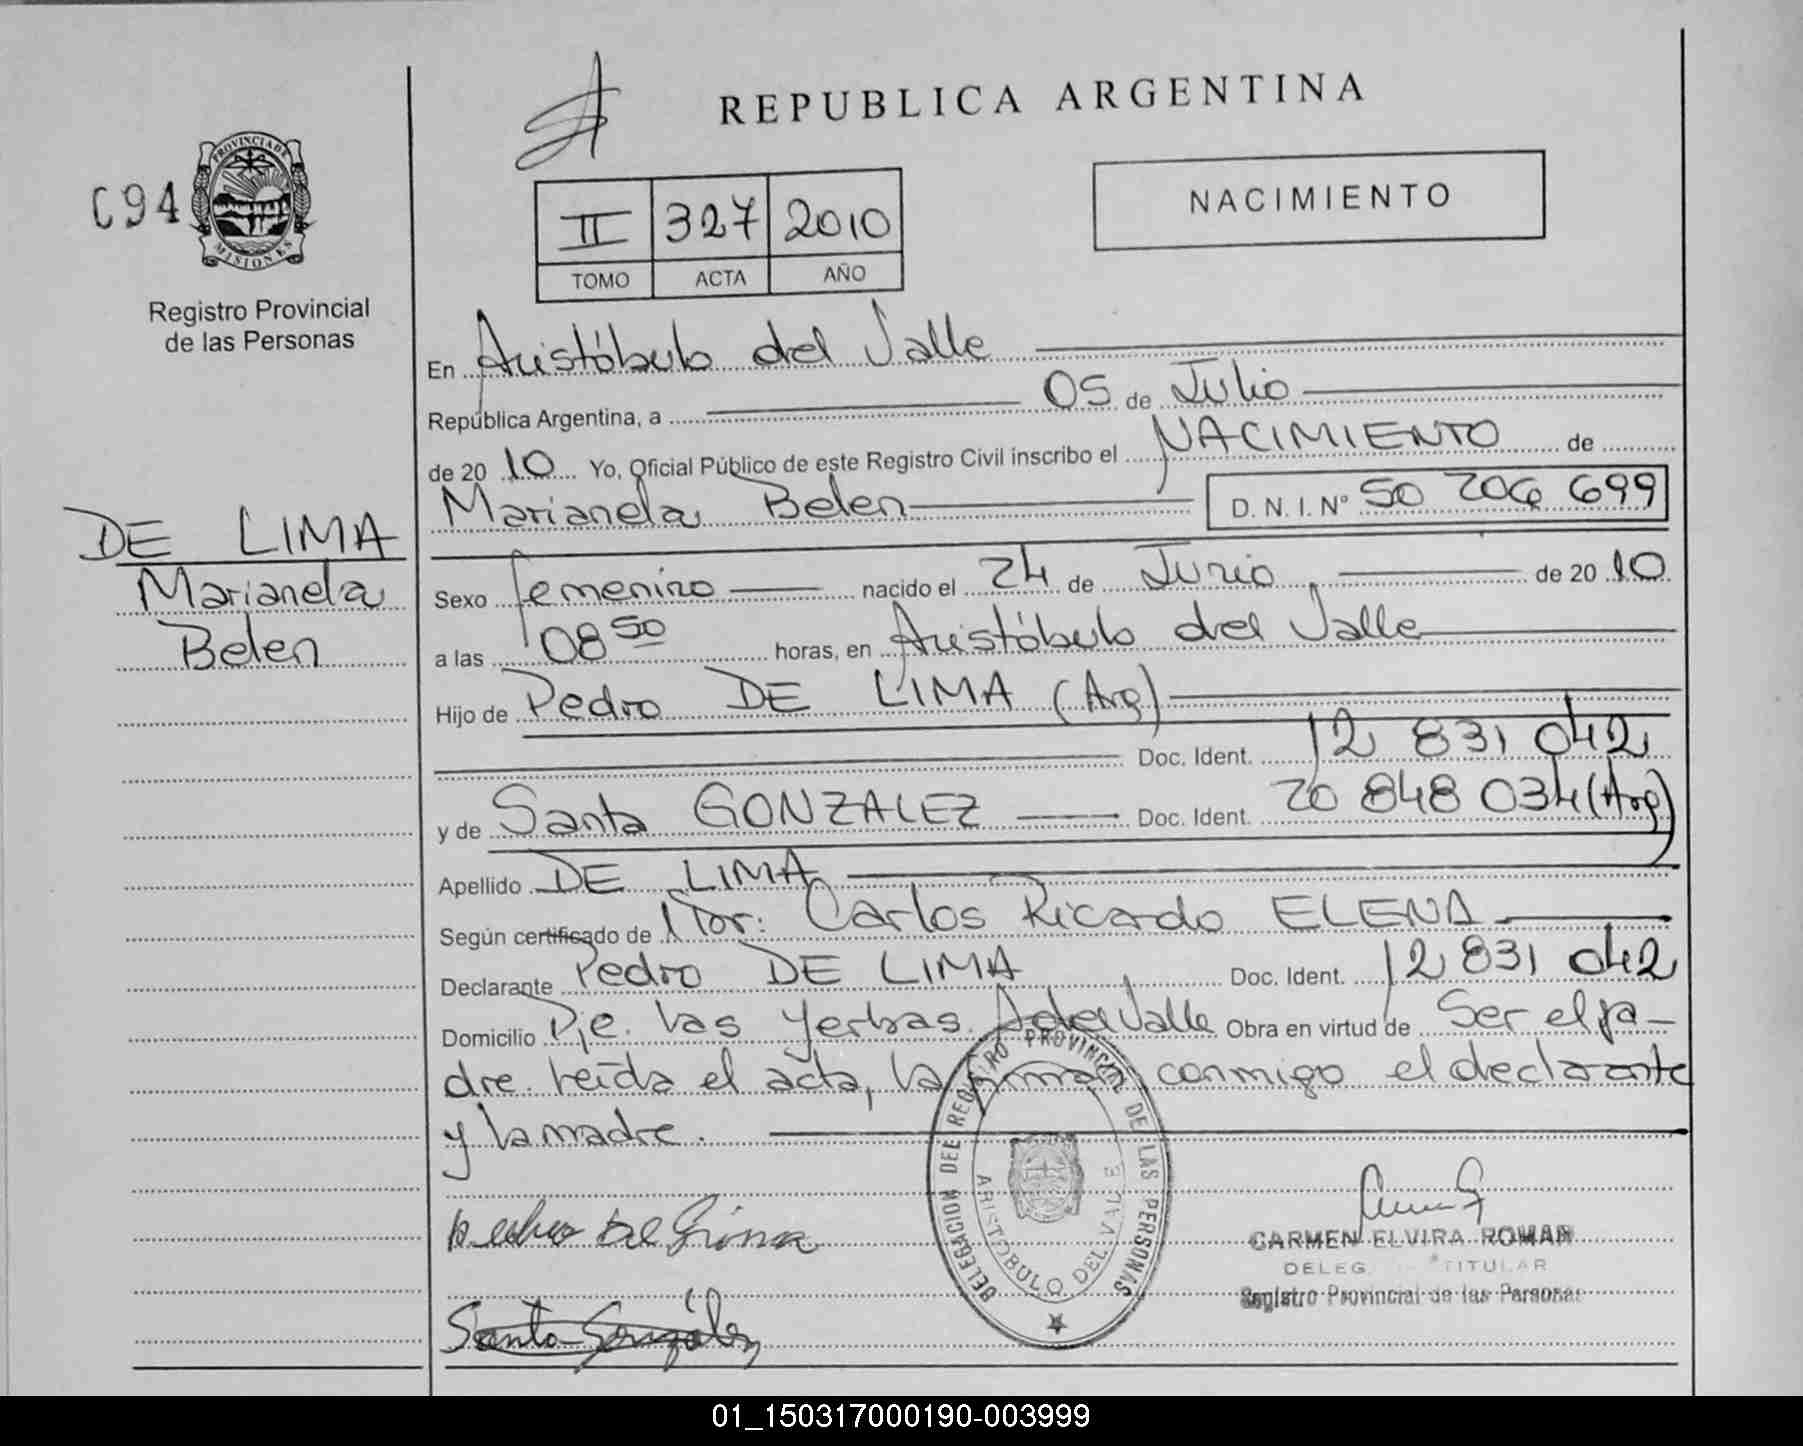 REPUBLICA ARGENTINA
C94
PROVINCIA DE
MISIONES
Registro Provincial
de las Personas
II 327 2010
TOMO ACTA AÑO
NACIMIENTO
En Aristóbulo del Valle
República Argentina, a 05 de Julio
de 2010 Yo, Oficial Público de este Registro Civil inscribo el NACIMIENTO de
Marianela Belen D. N. I. Nº 50 206 699
DE LIMA
Marianela
Belen
Sexo femenino nacido el 24 de Junio de 2010
a las 08 50 horas, en Aristóbulo del Valle
Hijo de Pedro DE LIMA (Arg)
Doc. Ident. 12 831 042
y de Santa GONZALEZ Doc. Ident. 20 848 034 (Arg)
Apellido DE LIMA
Según certificado de Dor: Carlos Ricardo ELENA
Declarante Pedro DE LIMA Doc. Ident. 12 831 042
Domicilio Pje. las Yerbas. A del Valle Obra en virtud de Ser el pa-
dre. leída el acta, la firman conmigo el declarante
y la madre.
DELEGACION DEL REGISTRO PROVINCIAL DE LAS PERSONAS
ARISTOBULO DEL VALLE
Pedro De Lima
CARMEN ELVIRA ROMAN
DELEG TITULAR
Registro Provincial de las Personas
Santa González
01_150317000190-003999